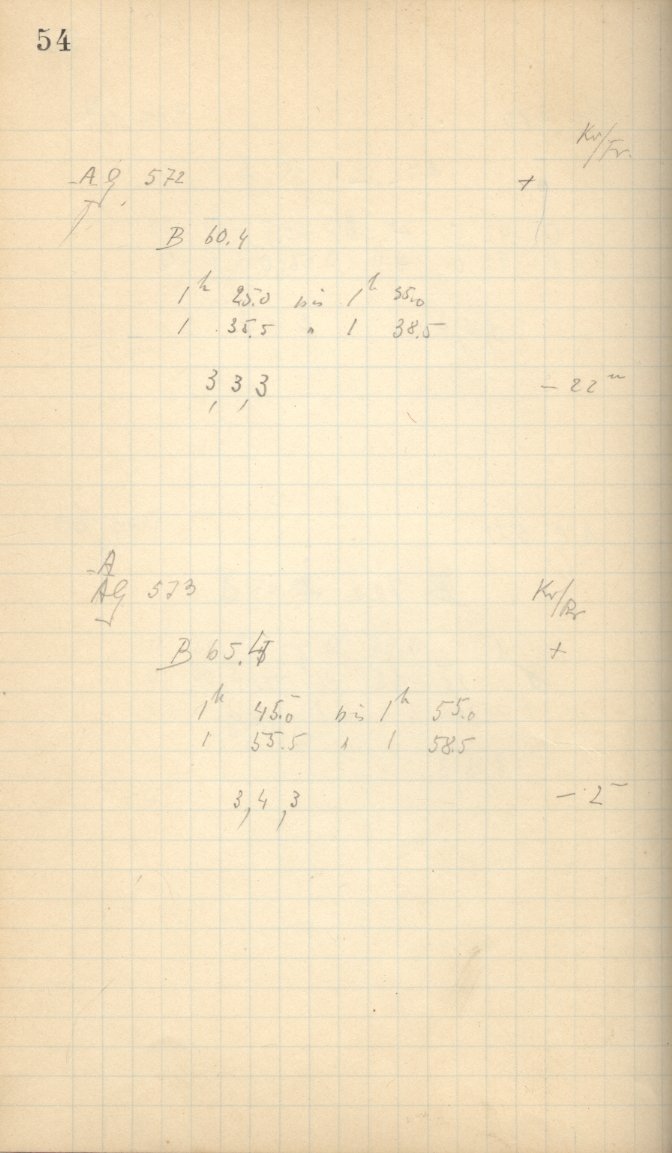 54
Kr/Fr.
AG 572 +
B 60.4
1h 25.0 bis 1h 35.0
1 35.5 " 1 38.5
3, 3, 3 - 22m
A
AG 573 Kr/Rr
B 65.4 +
1h 45.0 bis 1h 55.0
1 55.5 " 1 58.5
3, 4, 3 - 2m